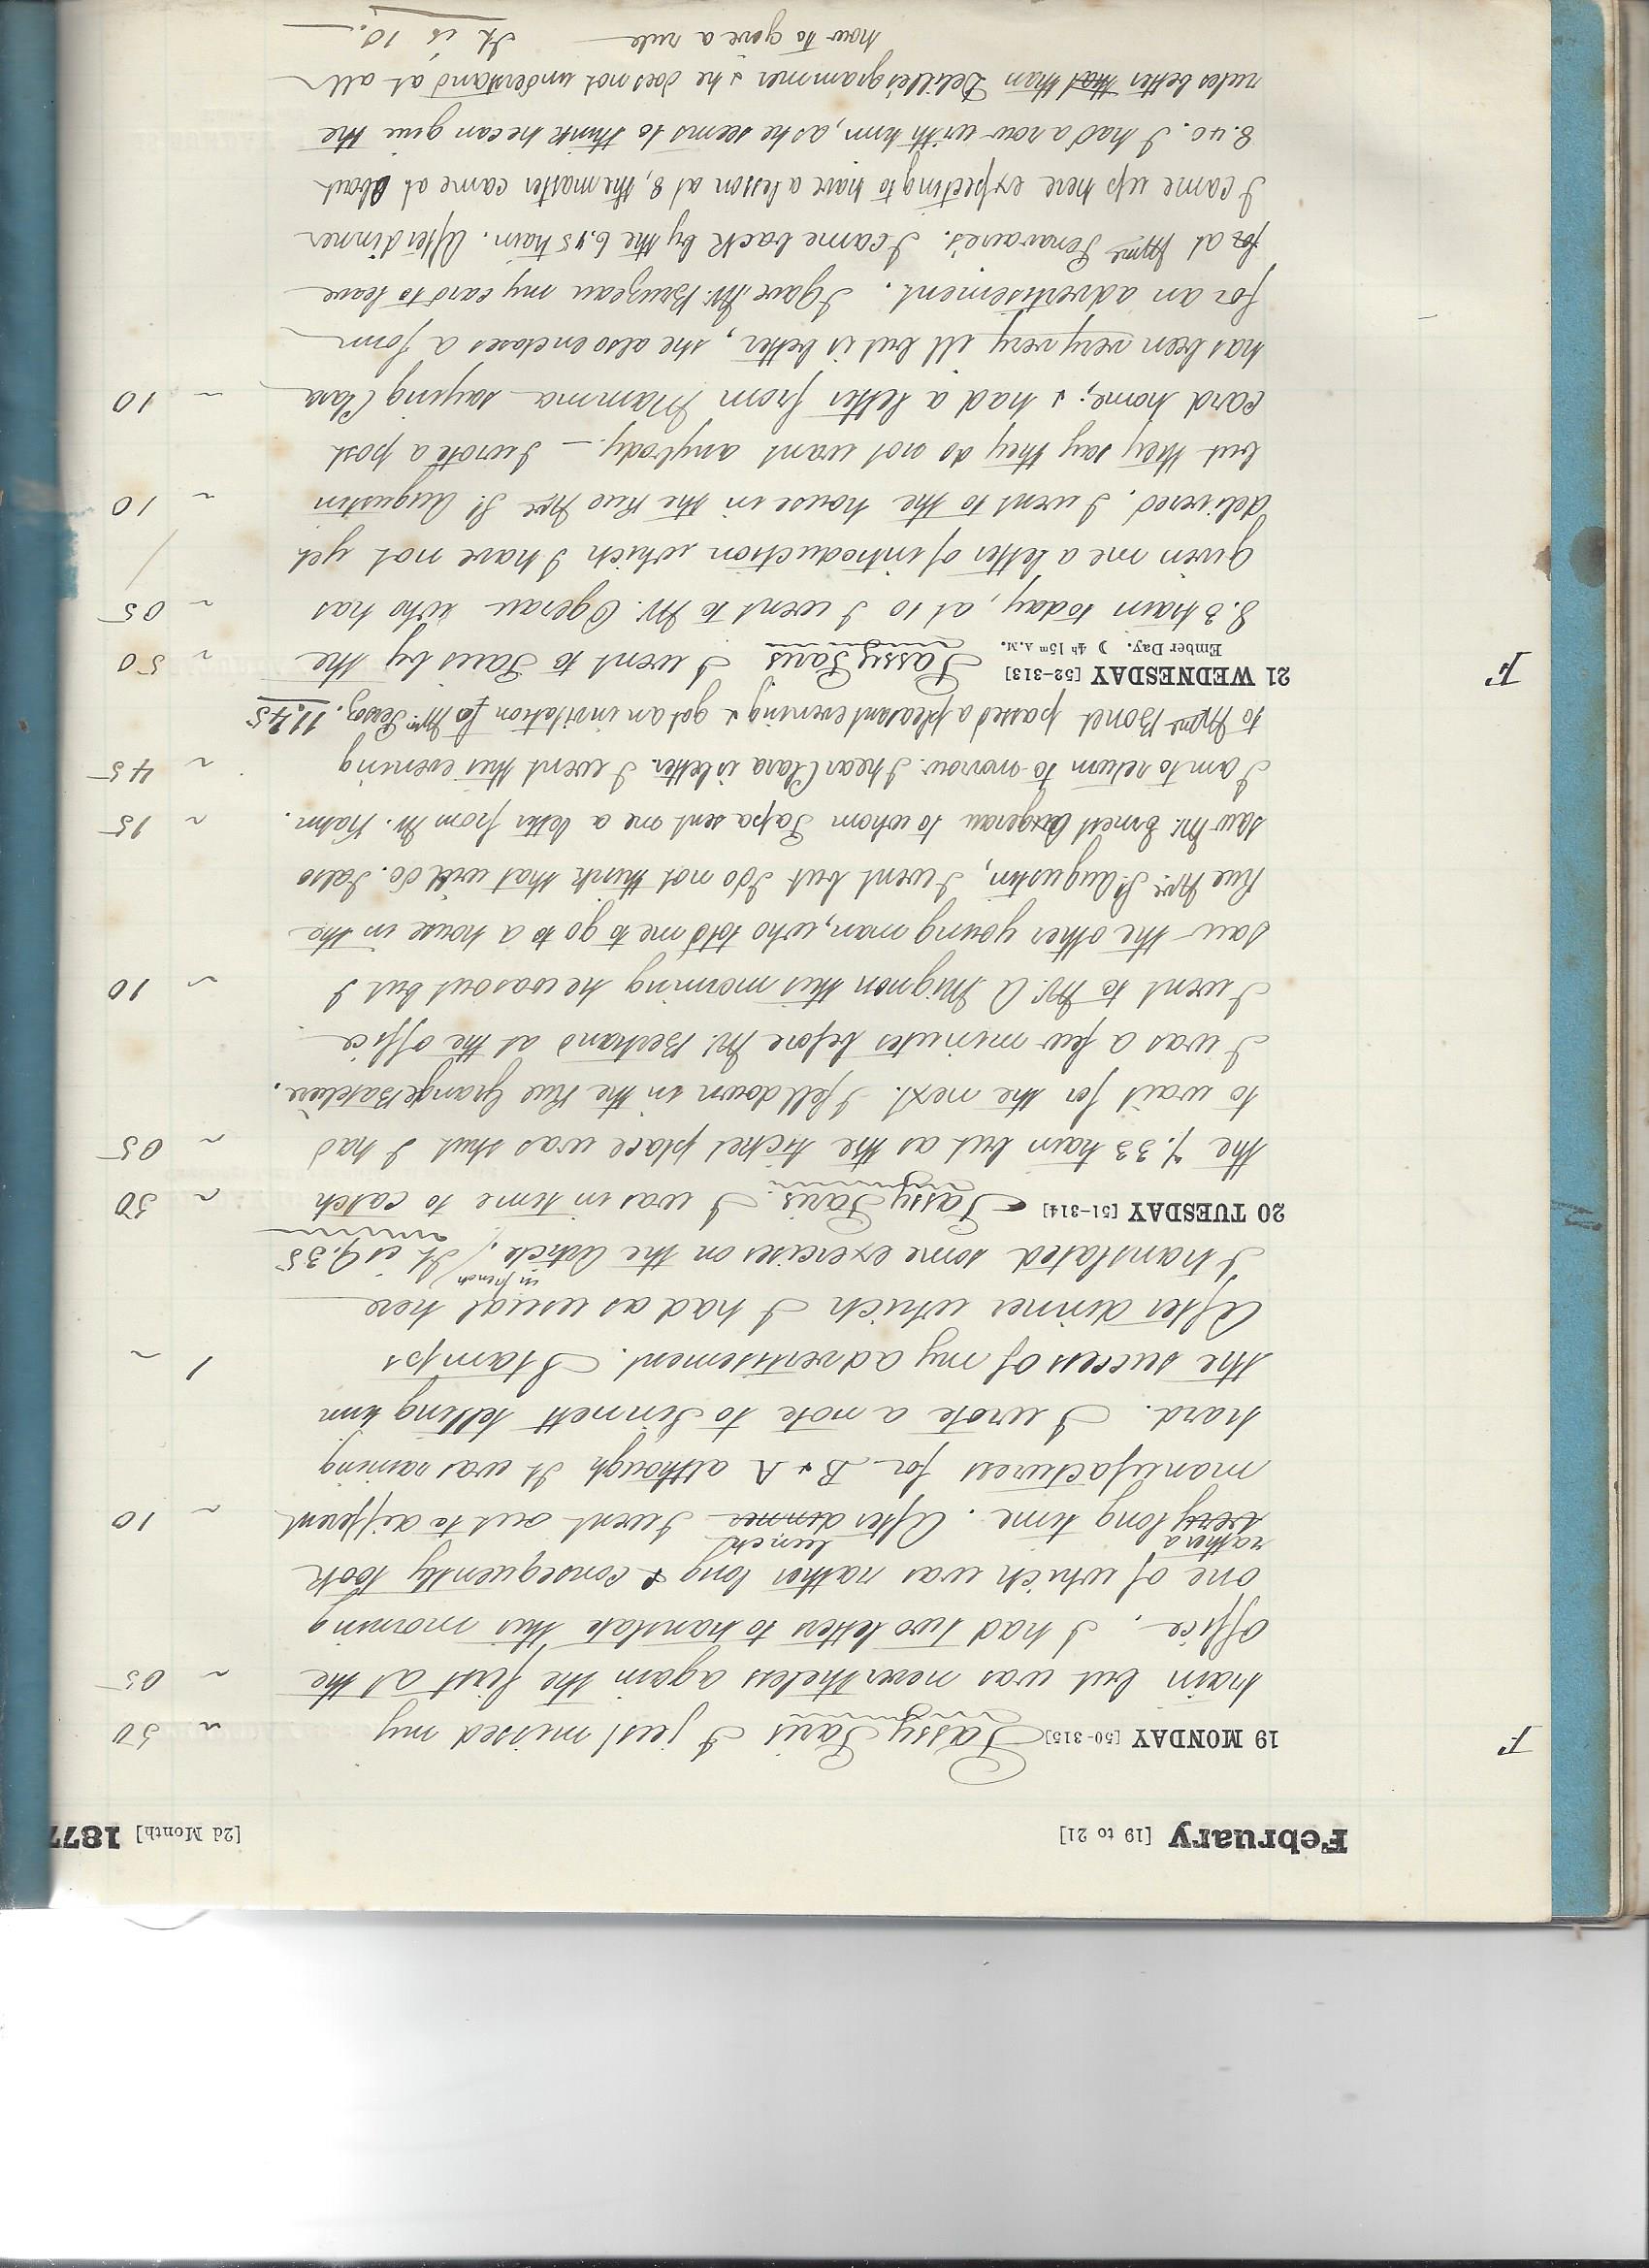 February [19 to 21] [2d Month] 1877
F 19 MONDAY [50-315] Passy Paris I just missed my ~ 50
train but was nevertheless again the first at the ~ 05
office. I had two letters to translate this morning
one of which was rather long & consequently took
rather a lunch
very long time. After dinner I went out to different ~ 10
manufacturers for B & A although It was raining
hard. I wrote a note to Sinnett telling him
the success of my advertisement. Stamps 1 ~
After dinner which I had as usual here
in french
I translated some exercises on the Article. It is 9.35
20 TUESDAY [51-314] Passy Paris. I was in time to catch ~ 50
the 7.33 train but as the ticket place was shut I had ~ 05
to wait for the next. I fell down in the Rue Grange Batelière.
I was a few minutes before Mr. Bertrand at the office
I went to Mr. A Mignon this morning he was out but I ~ 10
saw the other young man, who told me to go to a house in the
Rue Nve. St. Augustin, I went but I do not think that will do. I also
saw Mr. Ernest Augerau to whom Papa sent me a letter from Mr. Kahn. ~ 15
I am to return to-morrow. I hear Clara is better. I went this evening ~ 45
to Bonet passed a pleasant evening & got an invitation fo 11.45
F 21 WEDNESDAY [52-313] Passy Paris I went to Paris by the ~ 50
Ember Day. ☽ 4h 15m A.M.
8.3 train today, at 10 I went to Mr. Ogerau who has ~ 05
given me a letter of introduction which I have not yet /
delivered. I went to the house in the Rue Nve St. Augustin ~ 10
but they say they do not want anybody. — I wrote a post
card home; & had a letter from Mamma saying Clara ~ 10
has been very very ill but is better, she also encloses a form
for an advertisement. I gave Mr. Bruzeau my card to leave
for at I came back by the 6.45 train. After dinner
I came up here expecting to have a lesson at 8, the master came at about
8.40. I had a row with him, as he seems to think he can give the
rules better that than Delille's grammer & he does not understand at all
how to give a rule It is 10.